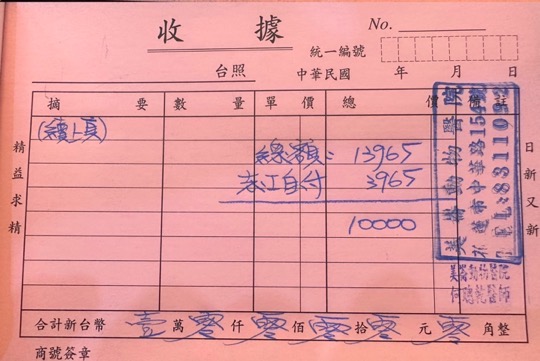 收據
No.
統一編號
台照 中華民國 年 月 日
摘要 數量 單價 總價 備註
(續上頁)
總額: 13965
自付 3965
10000
精益求精
日新又新
美崙動物醫院
花蓮市中華路154號
TEL:8311092
美崙動物醫院
醫師
合計新台幣 壹萬零仟零佰零拾零元零角整
商號簽章